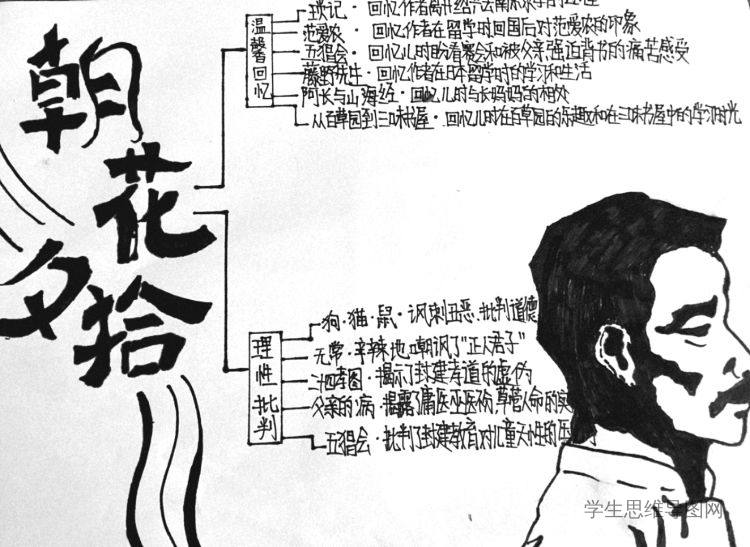 朝花夕拾
温馨回忆
琐记·回忆作者离开绍兴去南京求学的过程
范爱农·回忆作者在留学时回国后对范爱农的印象
五猖会·回忆儿时盼看赛会和被父亲强迫背书的痛苦感受
藤野先生·回忆作者在日本留学时的学习和生活
阿长与山海经·回忆儿时与长妈妈的相处
从百草园到三味书屋·回忆儿时在百草园的乐趣和在三味书屋中的学习时光
理性批判
狗·猫·鼠·讽刺丑恶·批判道德
无常·辛辣地嘲讽了"正人君子"
二十四孝图·揭示了封建孝道的虚伪
父亲的病·揭露了庸医巫医 草菅人命的实
五猖会·批判了封建教育对儿童天性的压
学生思维导图网